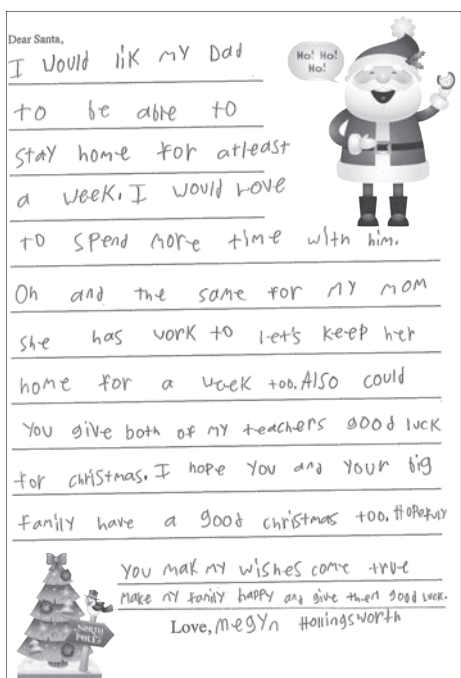 Dear Santa,
I would lik my Dad
Ho! Ho!
Ho!
to be able to
stay home for atleast
a week. I would Love
to spend more time with him.
Oh and the same for my mom
she has work to let's keep her
home for a week too. Also could
you give both of my teachers good luck
for christmas. I hope you and your big
family have a good christmas too. Hopefuly
you mak my wishes come true
make my family happy and give them good luck.
NORTH
POLE
Love, Megyn Hollingsworth